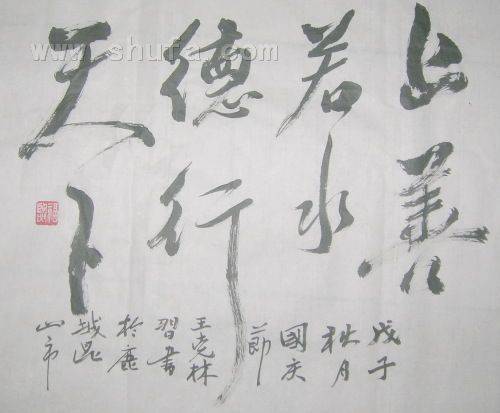 上善
若水
德行
天下
戊子
秋月
國庆
節
王克林
習書
於鹿
城昆
山市
www.shufa.com